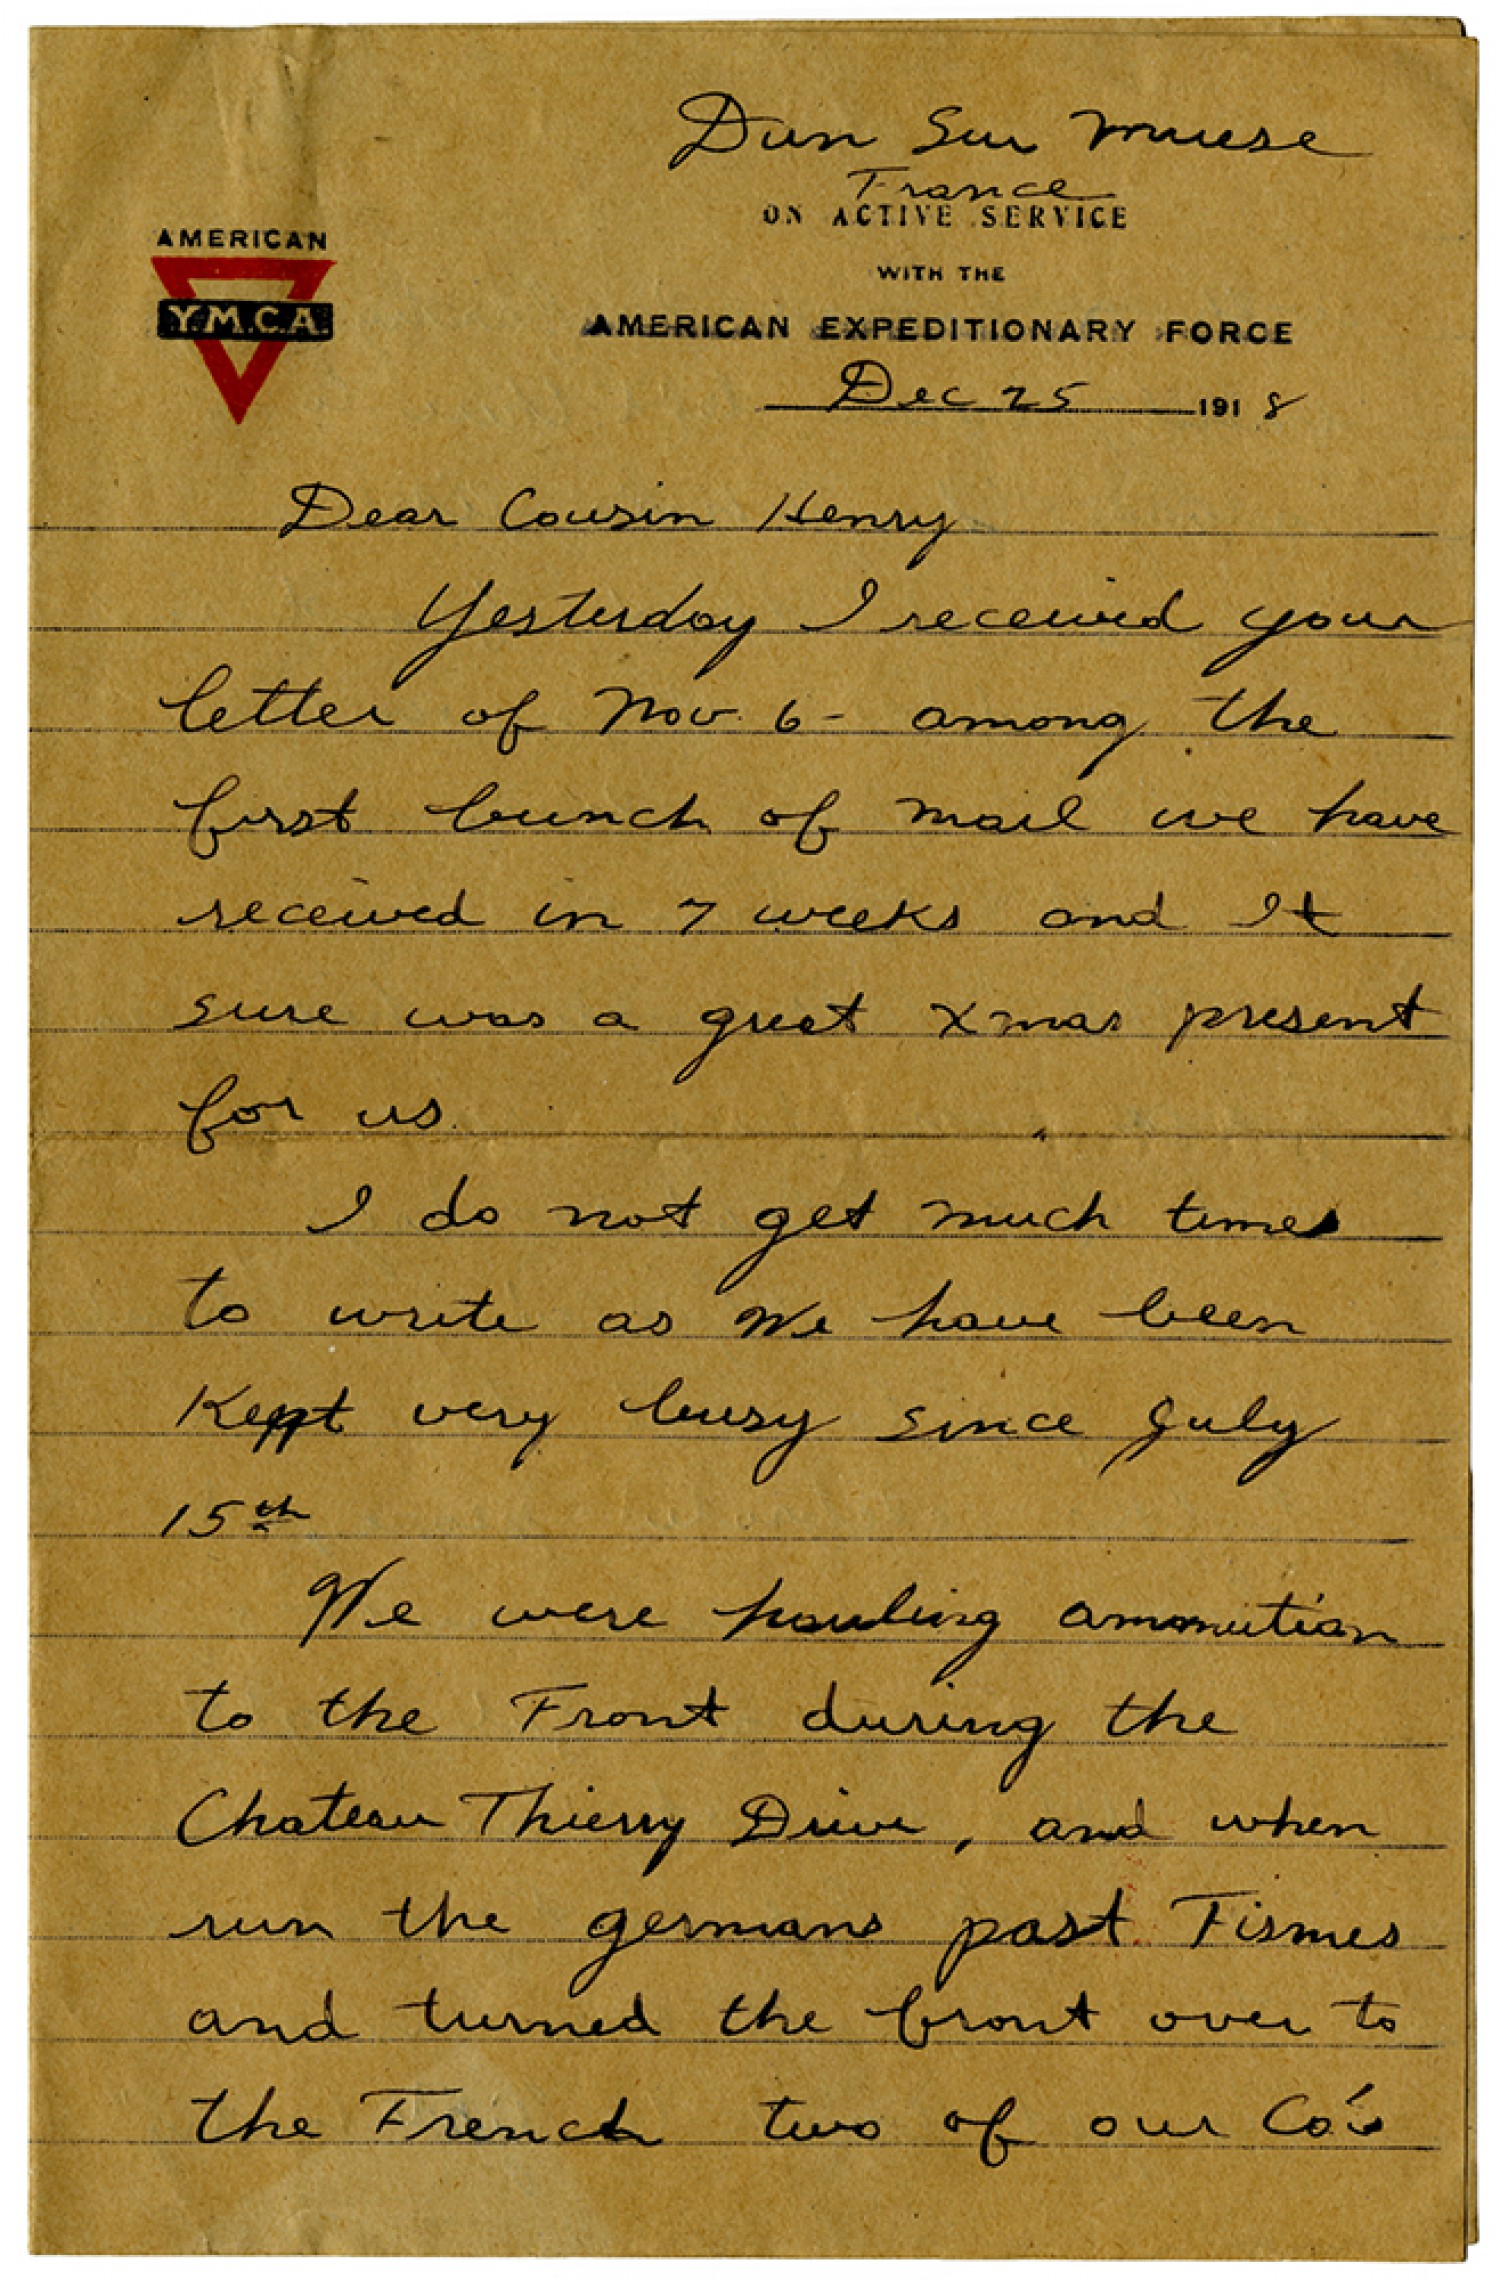 Dun Sur Muese
France
ON ACTIVE SERVICE
WITH THE
AMERICAN EXPEDITIONARY FORCE
AMERICAN
Y.M.C.A.
Dec 25 1918
Dear Cousin Henry
Yesterday I received your
letter of Nov. 6 - among the
first bunch of mail we have
received in 7 weeks and It
sure was a great Xmas present
for us.
I do not get much time
to write as We have been
Kept very busy since July
15th
We were hauling ammution
to the Front during the
Chateau Thierry Drive, and when
run the germans past Fismes
and turned the front over to
the French two of our Co's